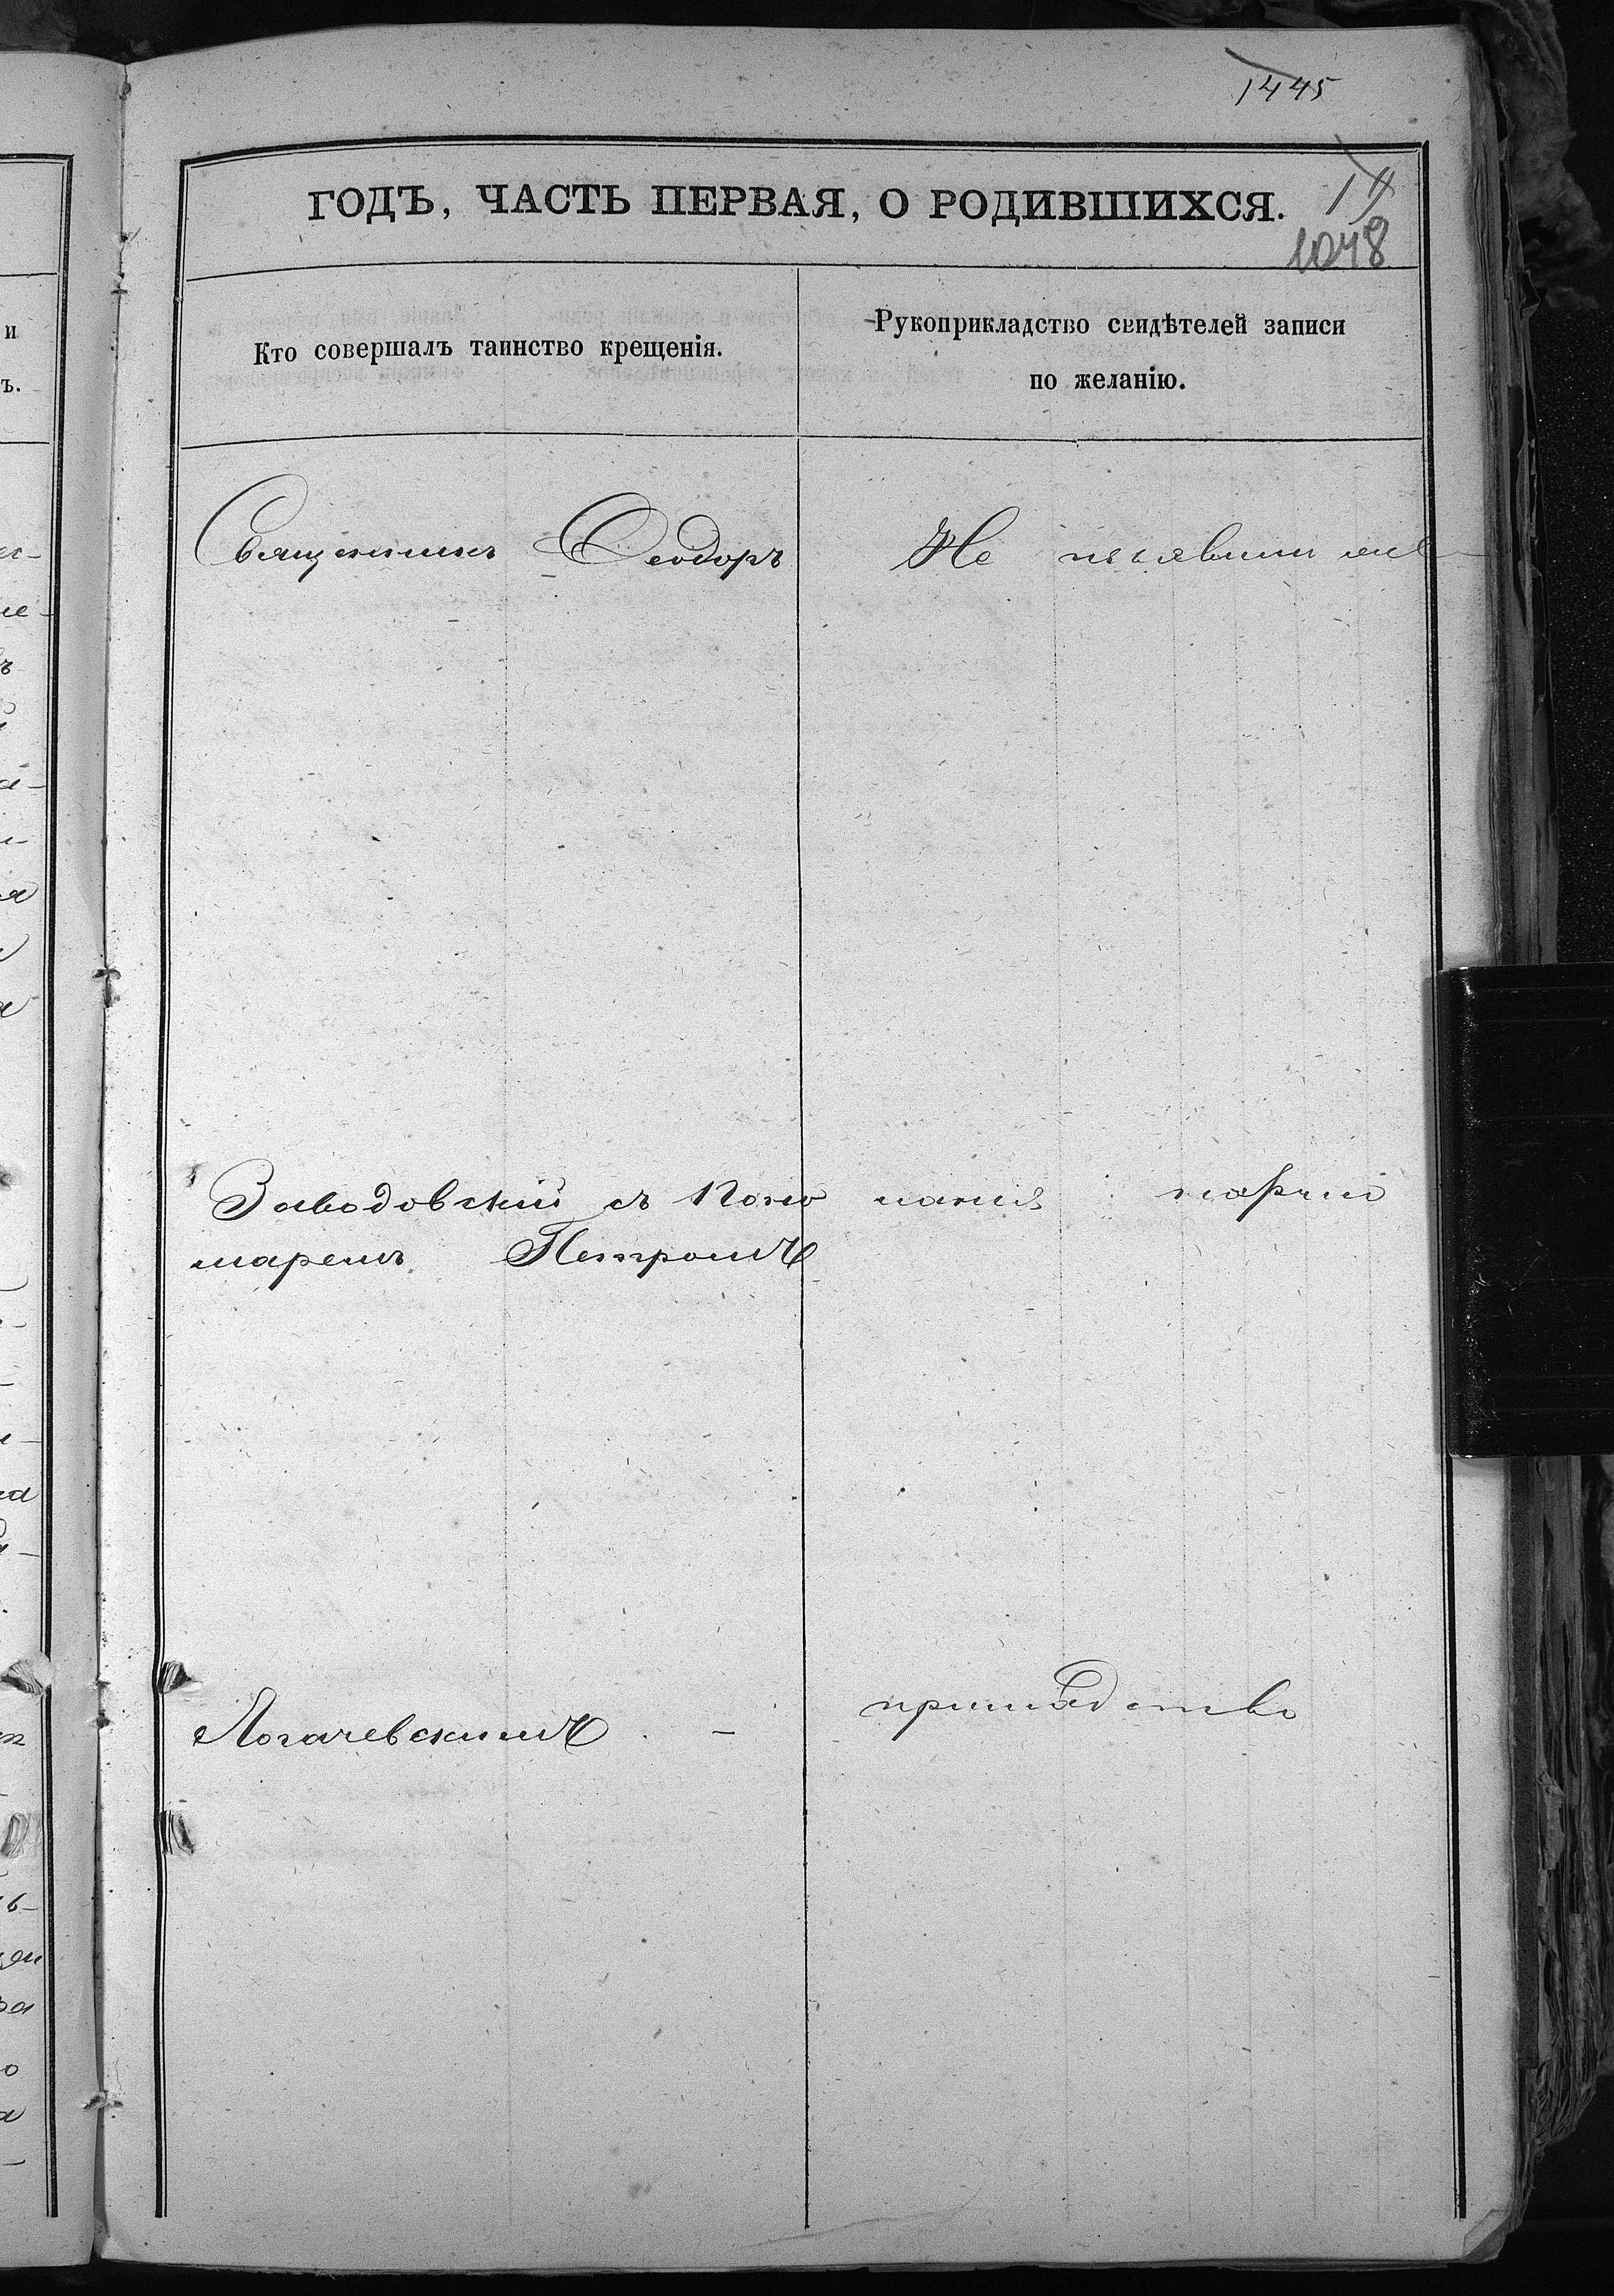 1445
ГОДЪ, ЧАСТЬ ПЕРВАЯ, О РОДИВШИХСЯ.
1048
Кто совершалъ таинство крещенія.
Рукоприкладство свидѣтелей записи
по желанію.
Священникъ Ѳеодоръ
Не изъявили же-
Заводовскій съ Поно
ланія
маремъ Петромъ
Логачевскимъ. -